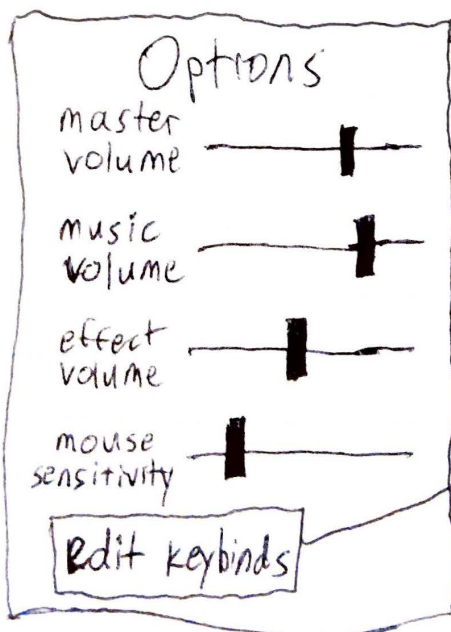 Options
master
volume
music
volume
effect
volume
mouse
sensitivity
Edit keybinds